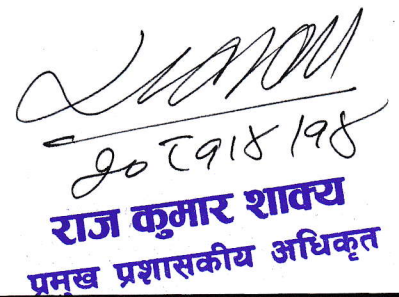 २०८१।४।१४
राज कुमार शाक्य
प्रमुख प्रशासकीय अधिकृत